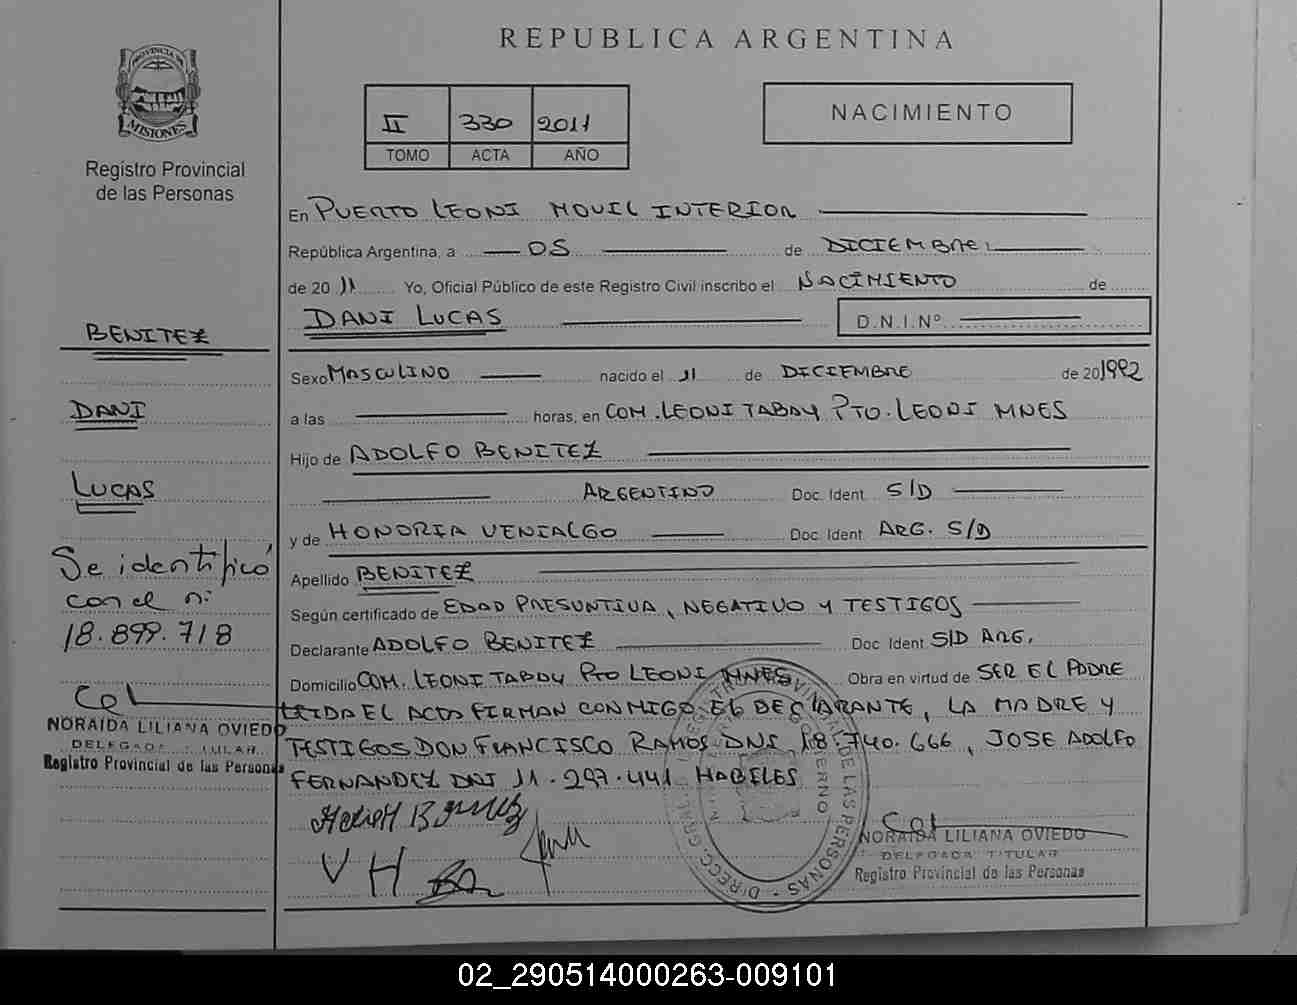 PROVINCIA DE
MISIONES
Registro Provincial
de las Personas
BENITEZ
DANI
LUCAS
Se identificó
con el n:
18.899.718
NORAIDA LILIANA OVIEDO
DELEGADA TITULAR
Registro Provincial de las Personas
REPUBLICA ARGENTINA
II 330 2011
TOMO ACTA AÑO
NACIMIENTO
En PUERTO LEONI MOVIL INTERIOR
República Argentina, a 05 de DICIEMBRE
de 20 11 Yo, Oficial Público de este Registro Civil inscribo el NACIMIENTO de
DANI LUCAS D.N.I.Nº
Sexo MASCULINO nacido el 11 de DICIEMBRE de 20 1992
a las horas, en COM. LEONI TABAY PTO. LEONI MNES
Hijo de ADOLFO BENITEZ
ARGENTINO Doc. Ident. S/D
y de HONORIA VENIALGO Doc. Ident. ARG. S/D
Apellido BENITEZ
Según certificado de EDAD PRESUNTIVA, NEGATIVO Y TESTIGOS
Declarante ADOLFO BENITEZ Doc. Ident. S/D ARG.
Domicilio COM. LEONI TABAY PTO LEONI MNES Obra en virtud de SER EL PADRE
LEIDA EL ACTA FIRMAN CONMIGO EL DECLARANTE, LA MADRE Y
TESTIGOS DON FRANCISCO RAMOS DNI 18.740.666, JOSE ADOLFO
FERNANDEZ DNI 11.297.441 HABILES
V H
NORAIDA LILIANA OVIEDO
DELEGADA TITULAR
Registro Provincial de las Personas
02_290514000263-009101